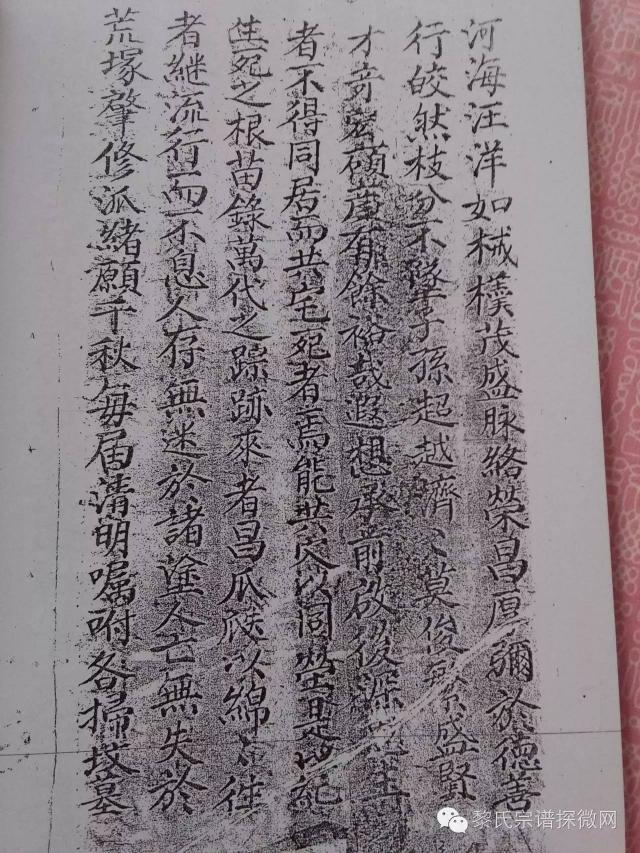 河海汪洋如棫樸茂盛脉絡榮昌厚彌於德善
行皎然枝分不墜子孫起越躋〻莫俊繁盛賢
才奇餘裕哉遐想承前啟後深
者不得同居而共宅死者焉能共穴以同塋是以紀
生死之根苗錄萬代之踪跡來者昌瓜瓞以綿〻往
者繼流行而不息人存無迷於諸塗人亡無失於
荒塚肇修派緒願千秋每届清明囑咐各掃坟墓
黎氏宗谱探微网